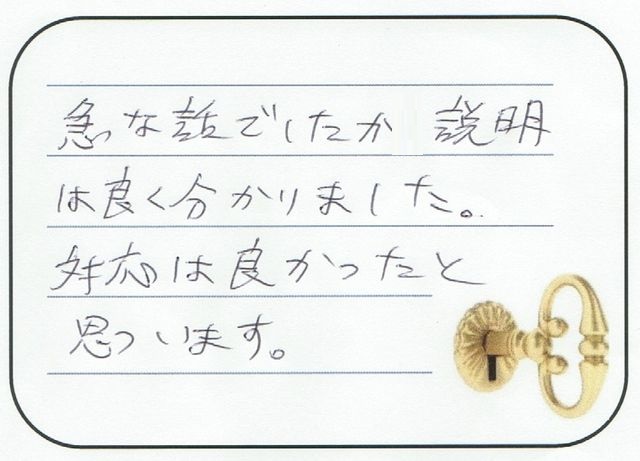 急な話でしたか 説明
は良く分かりました。
対応は良かったと
思っいます。